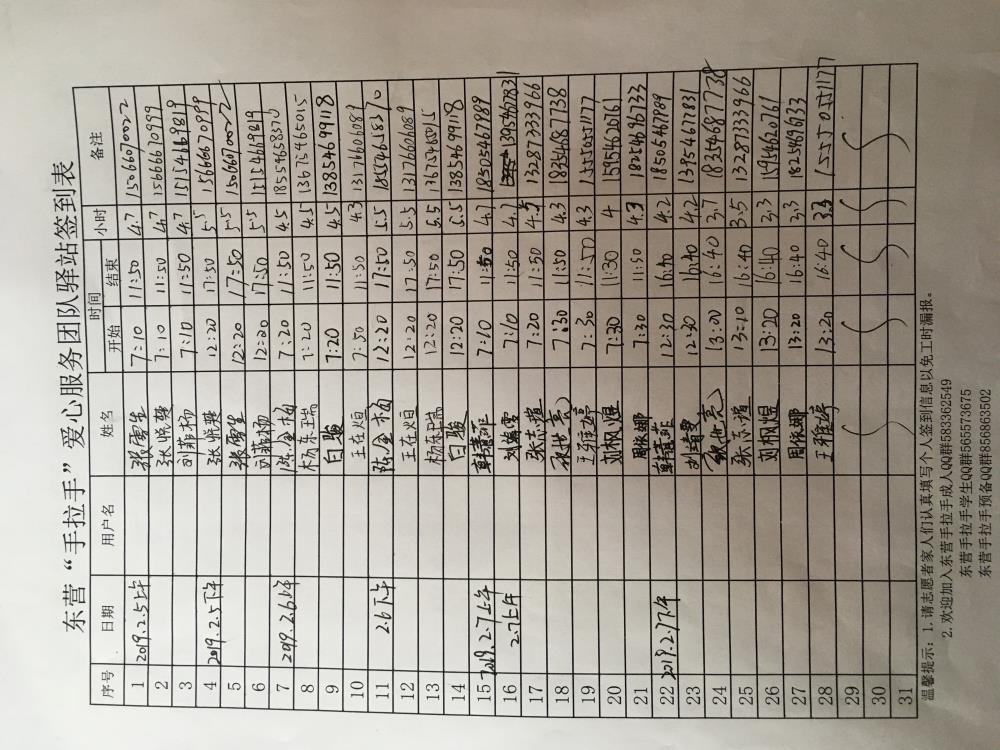 东营“手拉手”爱心服务团队驿站签到表
序号 日期 用户名 姓名 时间 小时 备注
开始 结束
1 2019.2.5上午 7:10 11:50 4.7 15066070002
2 张悦赞 7:10 11:50 4.7 15666670999
3 刘菲扬 7:10 11:50 4.7 15154169819
4 2019.2.5下午 12:20 17:50 5.5 15666670999
5 12:20 17:50 5.5 15066070002
6 刘菲扬 12:20 17:50 5.5
7 2019.2.6上午 7:20 11:50 4.5 18554658370
8 杨东瑞 7:20 11:50 4.5 13675465015
9 白骏 7:20 11:50 4.5 13854699118
10 王在烜 7:50 11:50 4.3 13176606089
11 2.6下午 12:20 17:50 5.5
12 王在烜 12:20 17:50 5.5 13176606089
13 12:20 17:50 5.5 13675465015
14 白骏 12:20 17:50 5.5 13854699118
15 2019.2.7上午 7:10 11:50 4.7 18505467989
16 2.7上午 7:10 11:50 4.7 13954678331
17 7:20 11:50 4.5 13287333966
18 7:30 11:50 4.3 18354687738
19 7:30 11:50 4.3 15550551177
20 刘枫煜 7:30 11:30 4 15954620761
21 周依娜 7:30 11:50 4.3 18254696733
22 2019.2.7下午 12:30 16:40 4.2 18505467989
23 12:30 16:40 4.2
24 13:20 16:40 3.7 18354687738
25 13:10 16:40 3.5 13287333966
26 刘枫煜 13:20 16:40 3.3 15954620761
27 周依娜 13:20 16:40 3.3
28 13:20 16:40 3.3 15550551177
29
30
31
温馨提示：1.请志愿者家人们认真填写个人签到信息以免工时漏报。
2.欢迎加入东营手拉手成人QQ群583362549
东营手拉手学生QQ群565573675
东营手拉手预备QQ群856863502